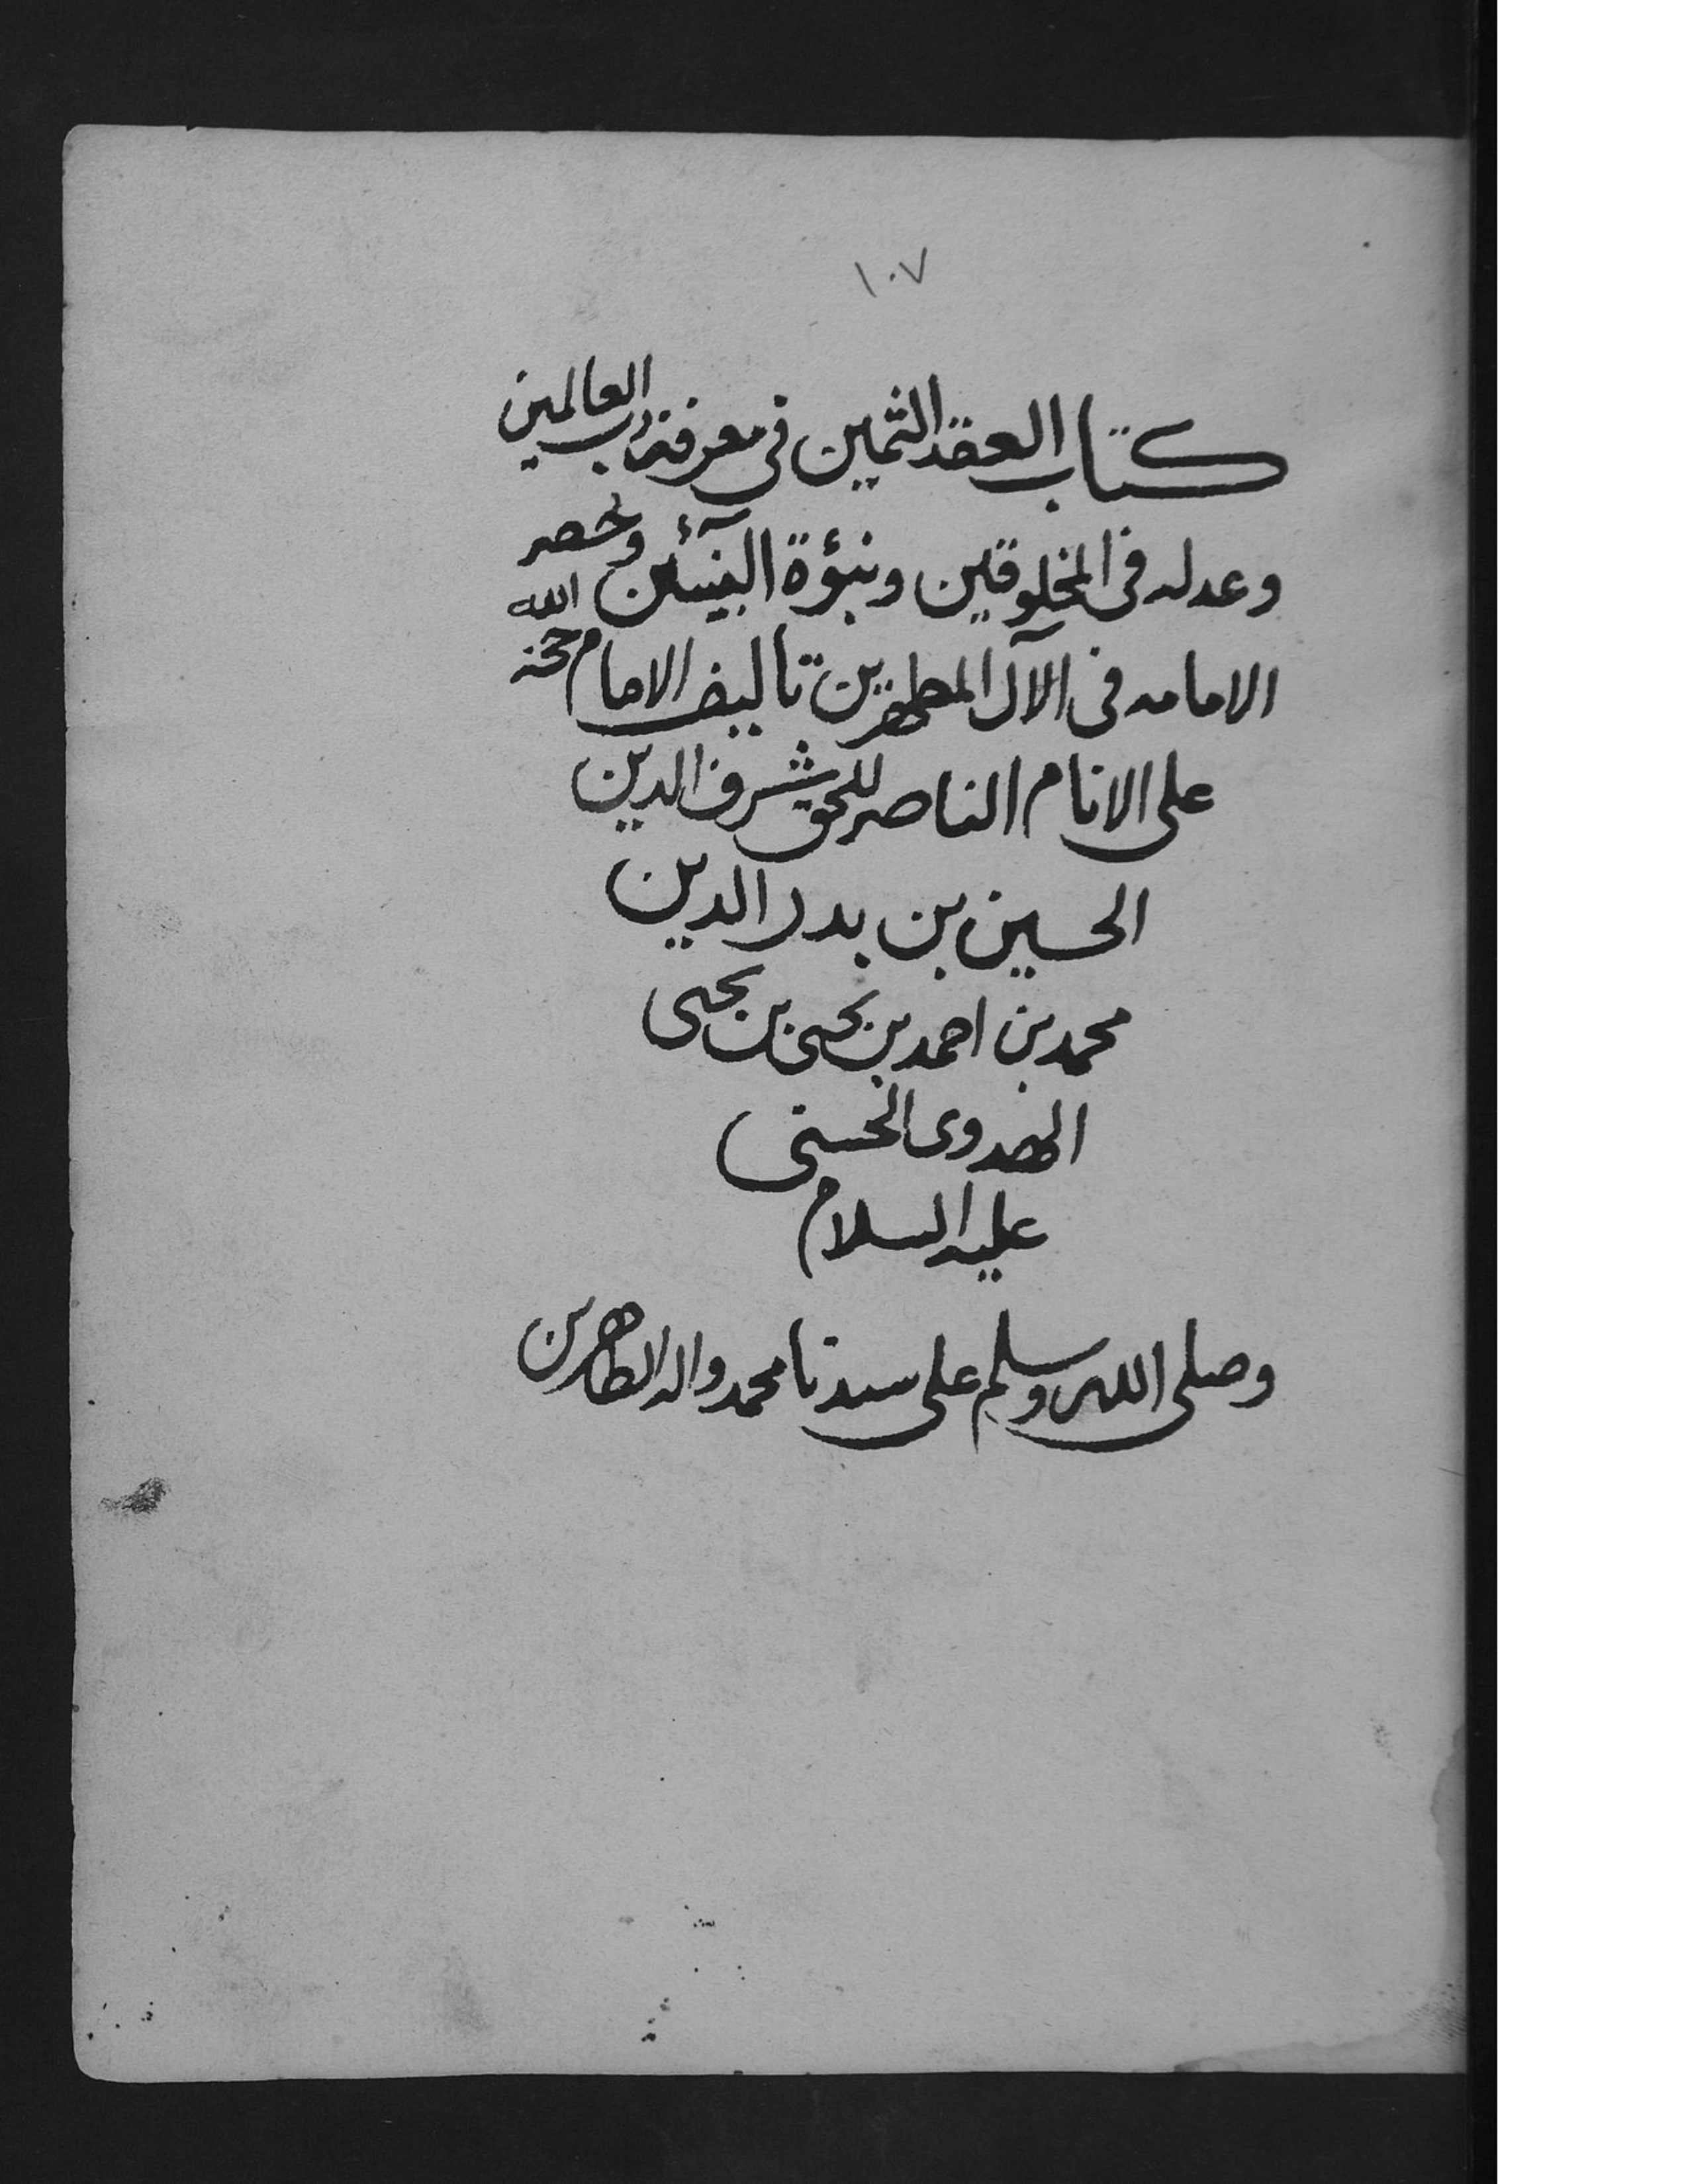 ١٠٧
كتاب العقد الثمين فى معرفة رب العالمين
وعدله فى المخلوقين ونبؤة النبيئين وحصر
الامامه فى الآل المطهرين تاليف الامام حجة الله
على الانام الناصر للحق شرف الدين
الحسين بن بدر الدين
محمد بن احمد بن يحيى بن يحيى
الهدوى الحسنى
عليه السلام
وصلى الله وسلم على سيدنا محمد واله الطاهرين